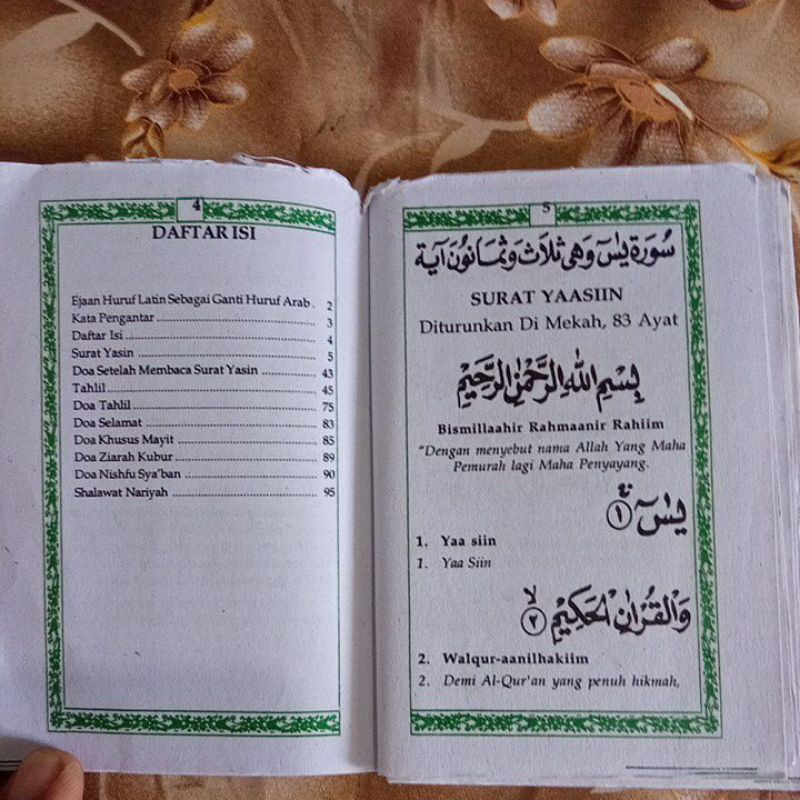 4
DAFTAR ISI
Ejaan Huruf Latin Sebagai Ganti Huruf Arab . 2
Kata Pengantar ........................ 3
Daftar Isi ........................ 4
Surat Yasin ........................ 5
Doa Setelah Membaca Surat Yasin ............ 43
Tahlil ........................ 45
Doa Tahlil ........................ 75
Doa Selamat ........................ 83
Doa Khusus Mayit ........................ 85
Doa Ziarah Kubur ........................ 89
Doa Nishfu Sya'ban ........................ 90
Shalawat Nariyah ........................ 95
5
سُورَة يٰسۤ وَهِيَ ثَلَاثٌ وَثَمَانُونَ آيَة
SURAT YAASIIN
Diturunkan Di Mekah, 83 Ayat
بِسْمِ اللّٰهِ الرَّحْمٰنِ الرَّحِيْمِ
Bismillaahir Rahmaanir Rahiim
"Dengan menyebut nama Allah Yang Maha
Pemurah lagi Maha Penyayang.
يٰسۤ ۚ ۝١
1. Yaa siin
1. Yaa Siin
وَالْقُرْاٰنِ الْحَكِيْمِ ۙ ۝٢
2. Walqur-aanilhakiim
2. Demi Al-Qur'an yang penuh hikmah,